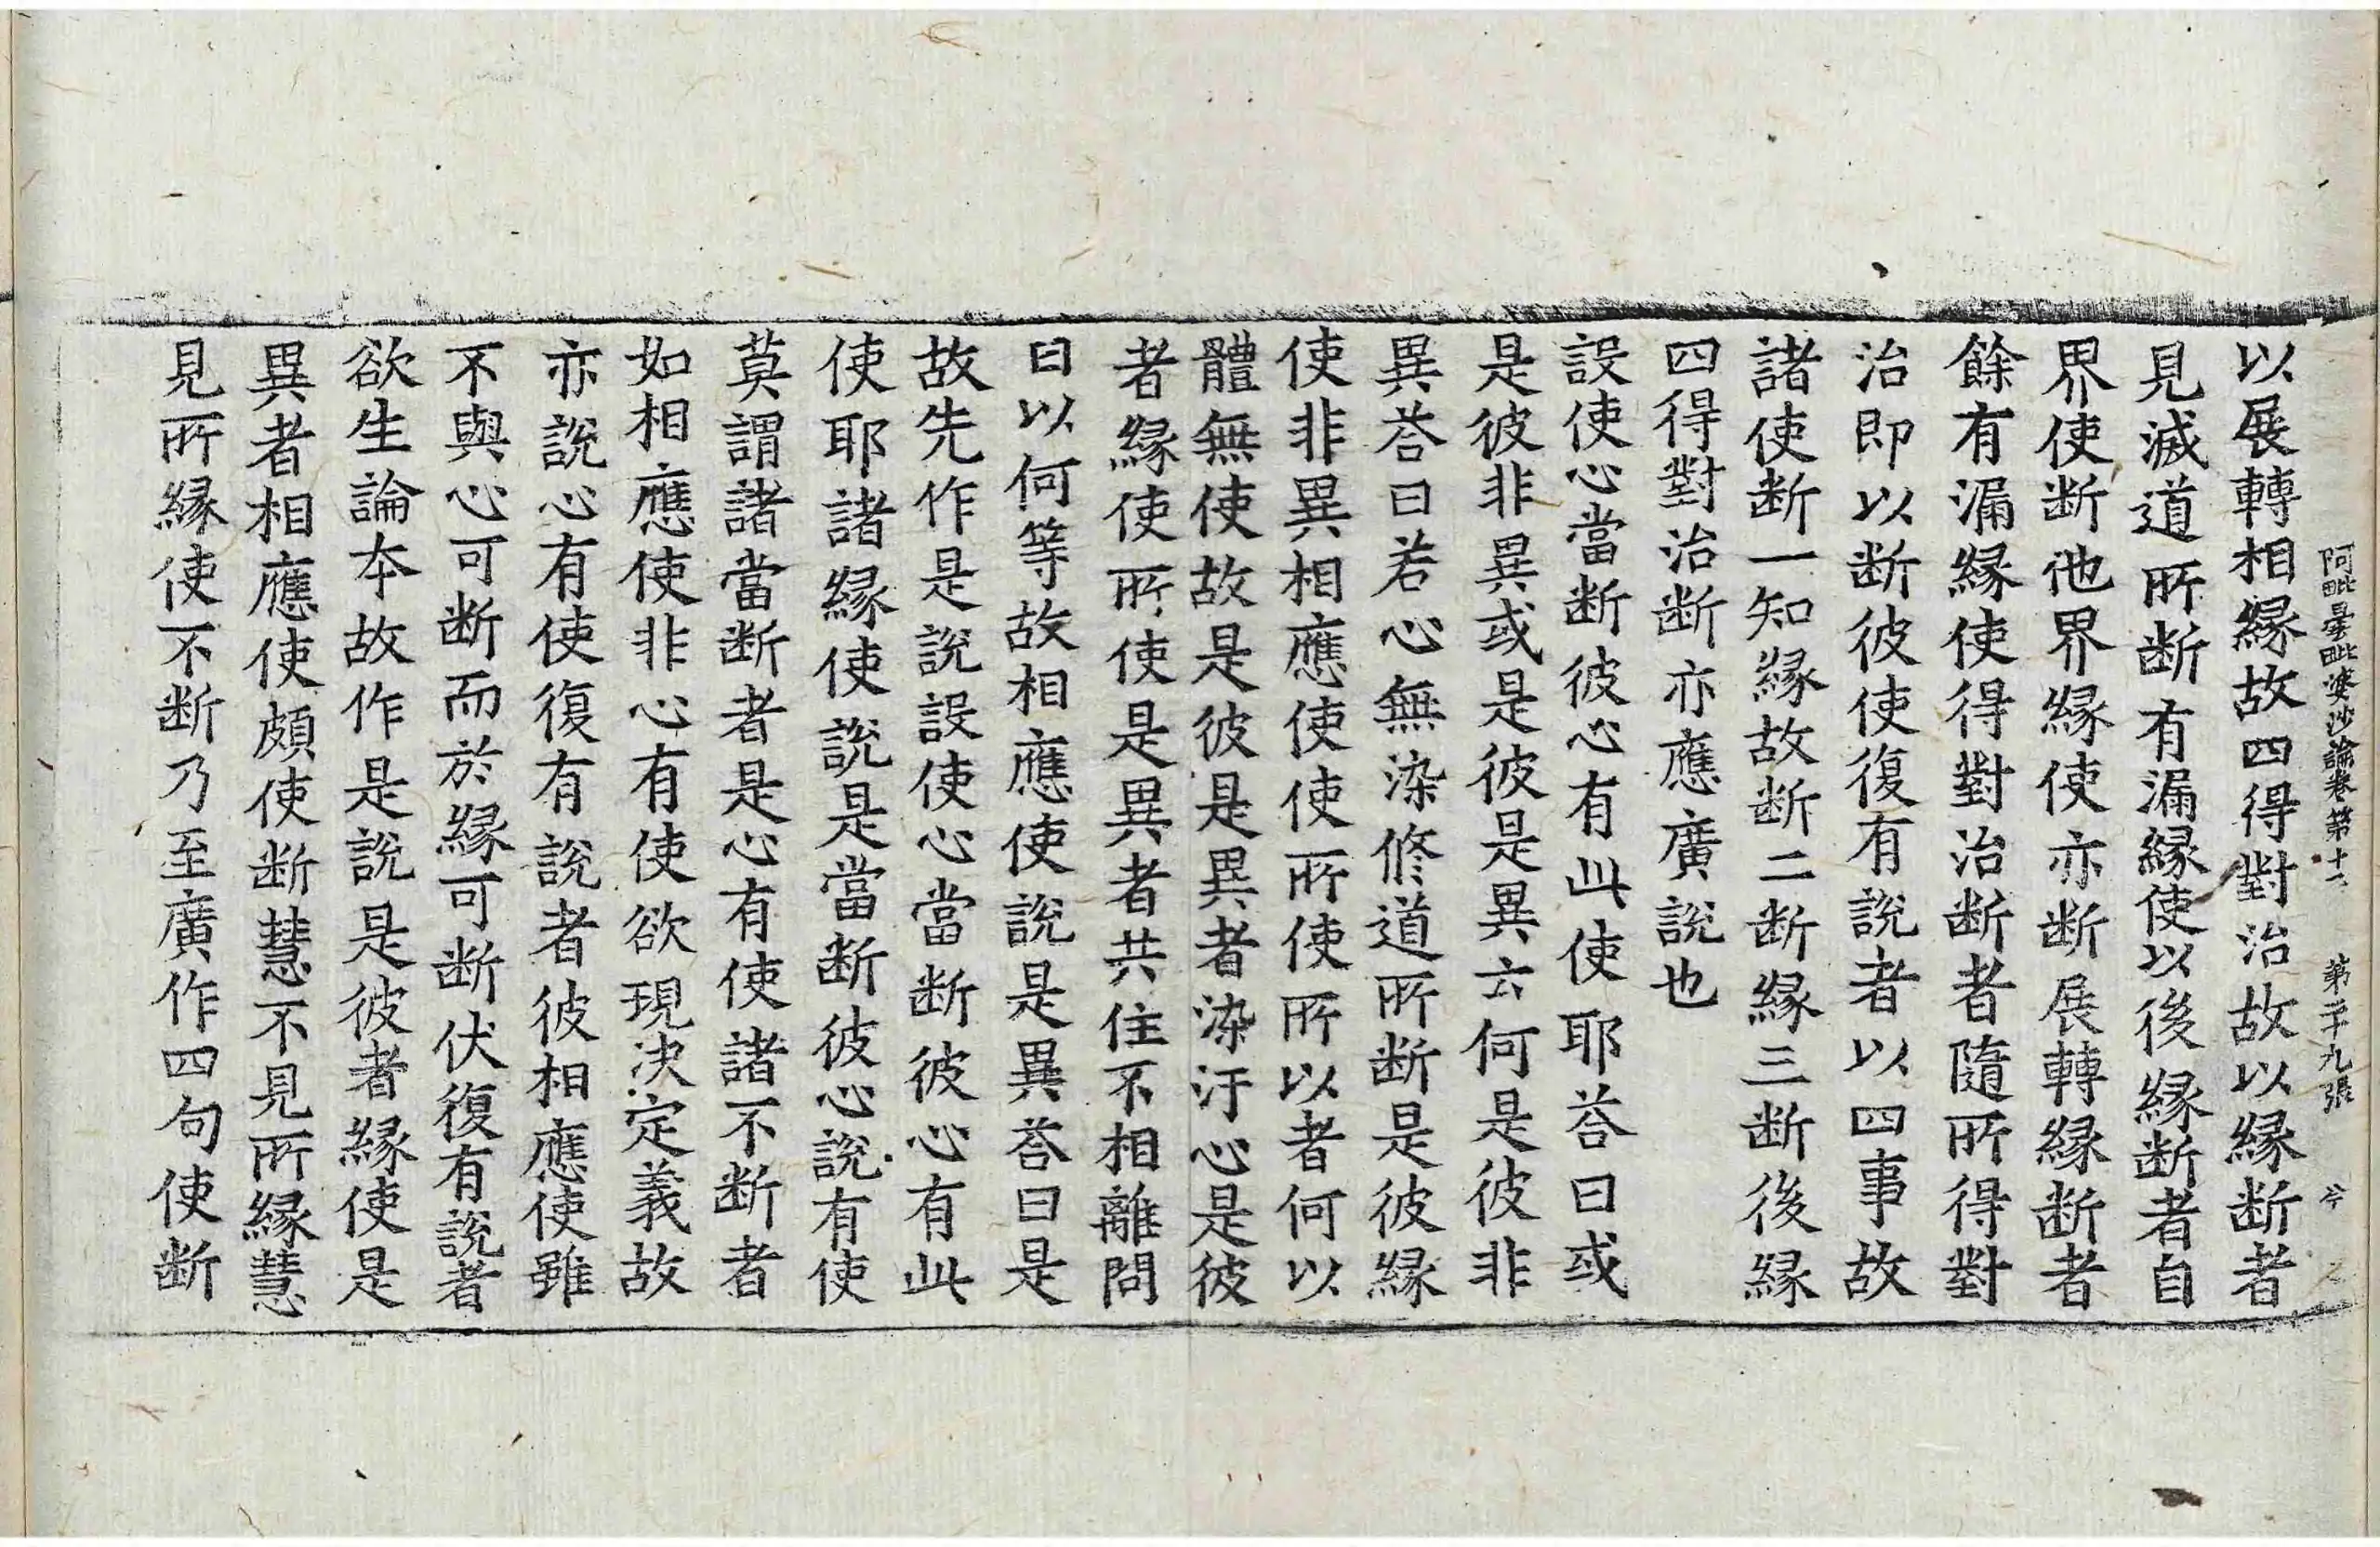 阿毗曇毗婆沙論卷第十一 第二十九張 兮
以展轉相緣故四得對治故以緣断者
見滅道所断有漏緣使以後緣断者自
界使断他界緣使亦断展轉緣断者
餘有漏緣使得對治断者隨所得對
治即以断彼使復有說者以四事故
諸使断一知緣故断二断緣三断後緣
四得對治断亦應廣說也
設使心當断彼心有此使耶荅曰或
是彼非異或是彼是異云何是彼非
異荅曰若心無染修道所断是彼緣
使非異相應使使所使所以者何以
體無使故是彼是異者染汙心是彼
者緣使所使是異者共住不相離問
曰以何等故相應使說是異荅曰是
故先作是說設使心當断彼心有此
使耶諸緣使說是當断彼心說有使
莫謂諸當断者是心有使諸不断者
如相應使非心有使欲現決定義故
亦說心有使復有說者彼相應使雖
不與心可断而於緣可断伏復有說者
欲生論本故作是說是彼者緣使是
異者相應使頗使断慧不見所緣慧
見所緣使不断乃至廣作四句使断